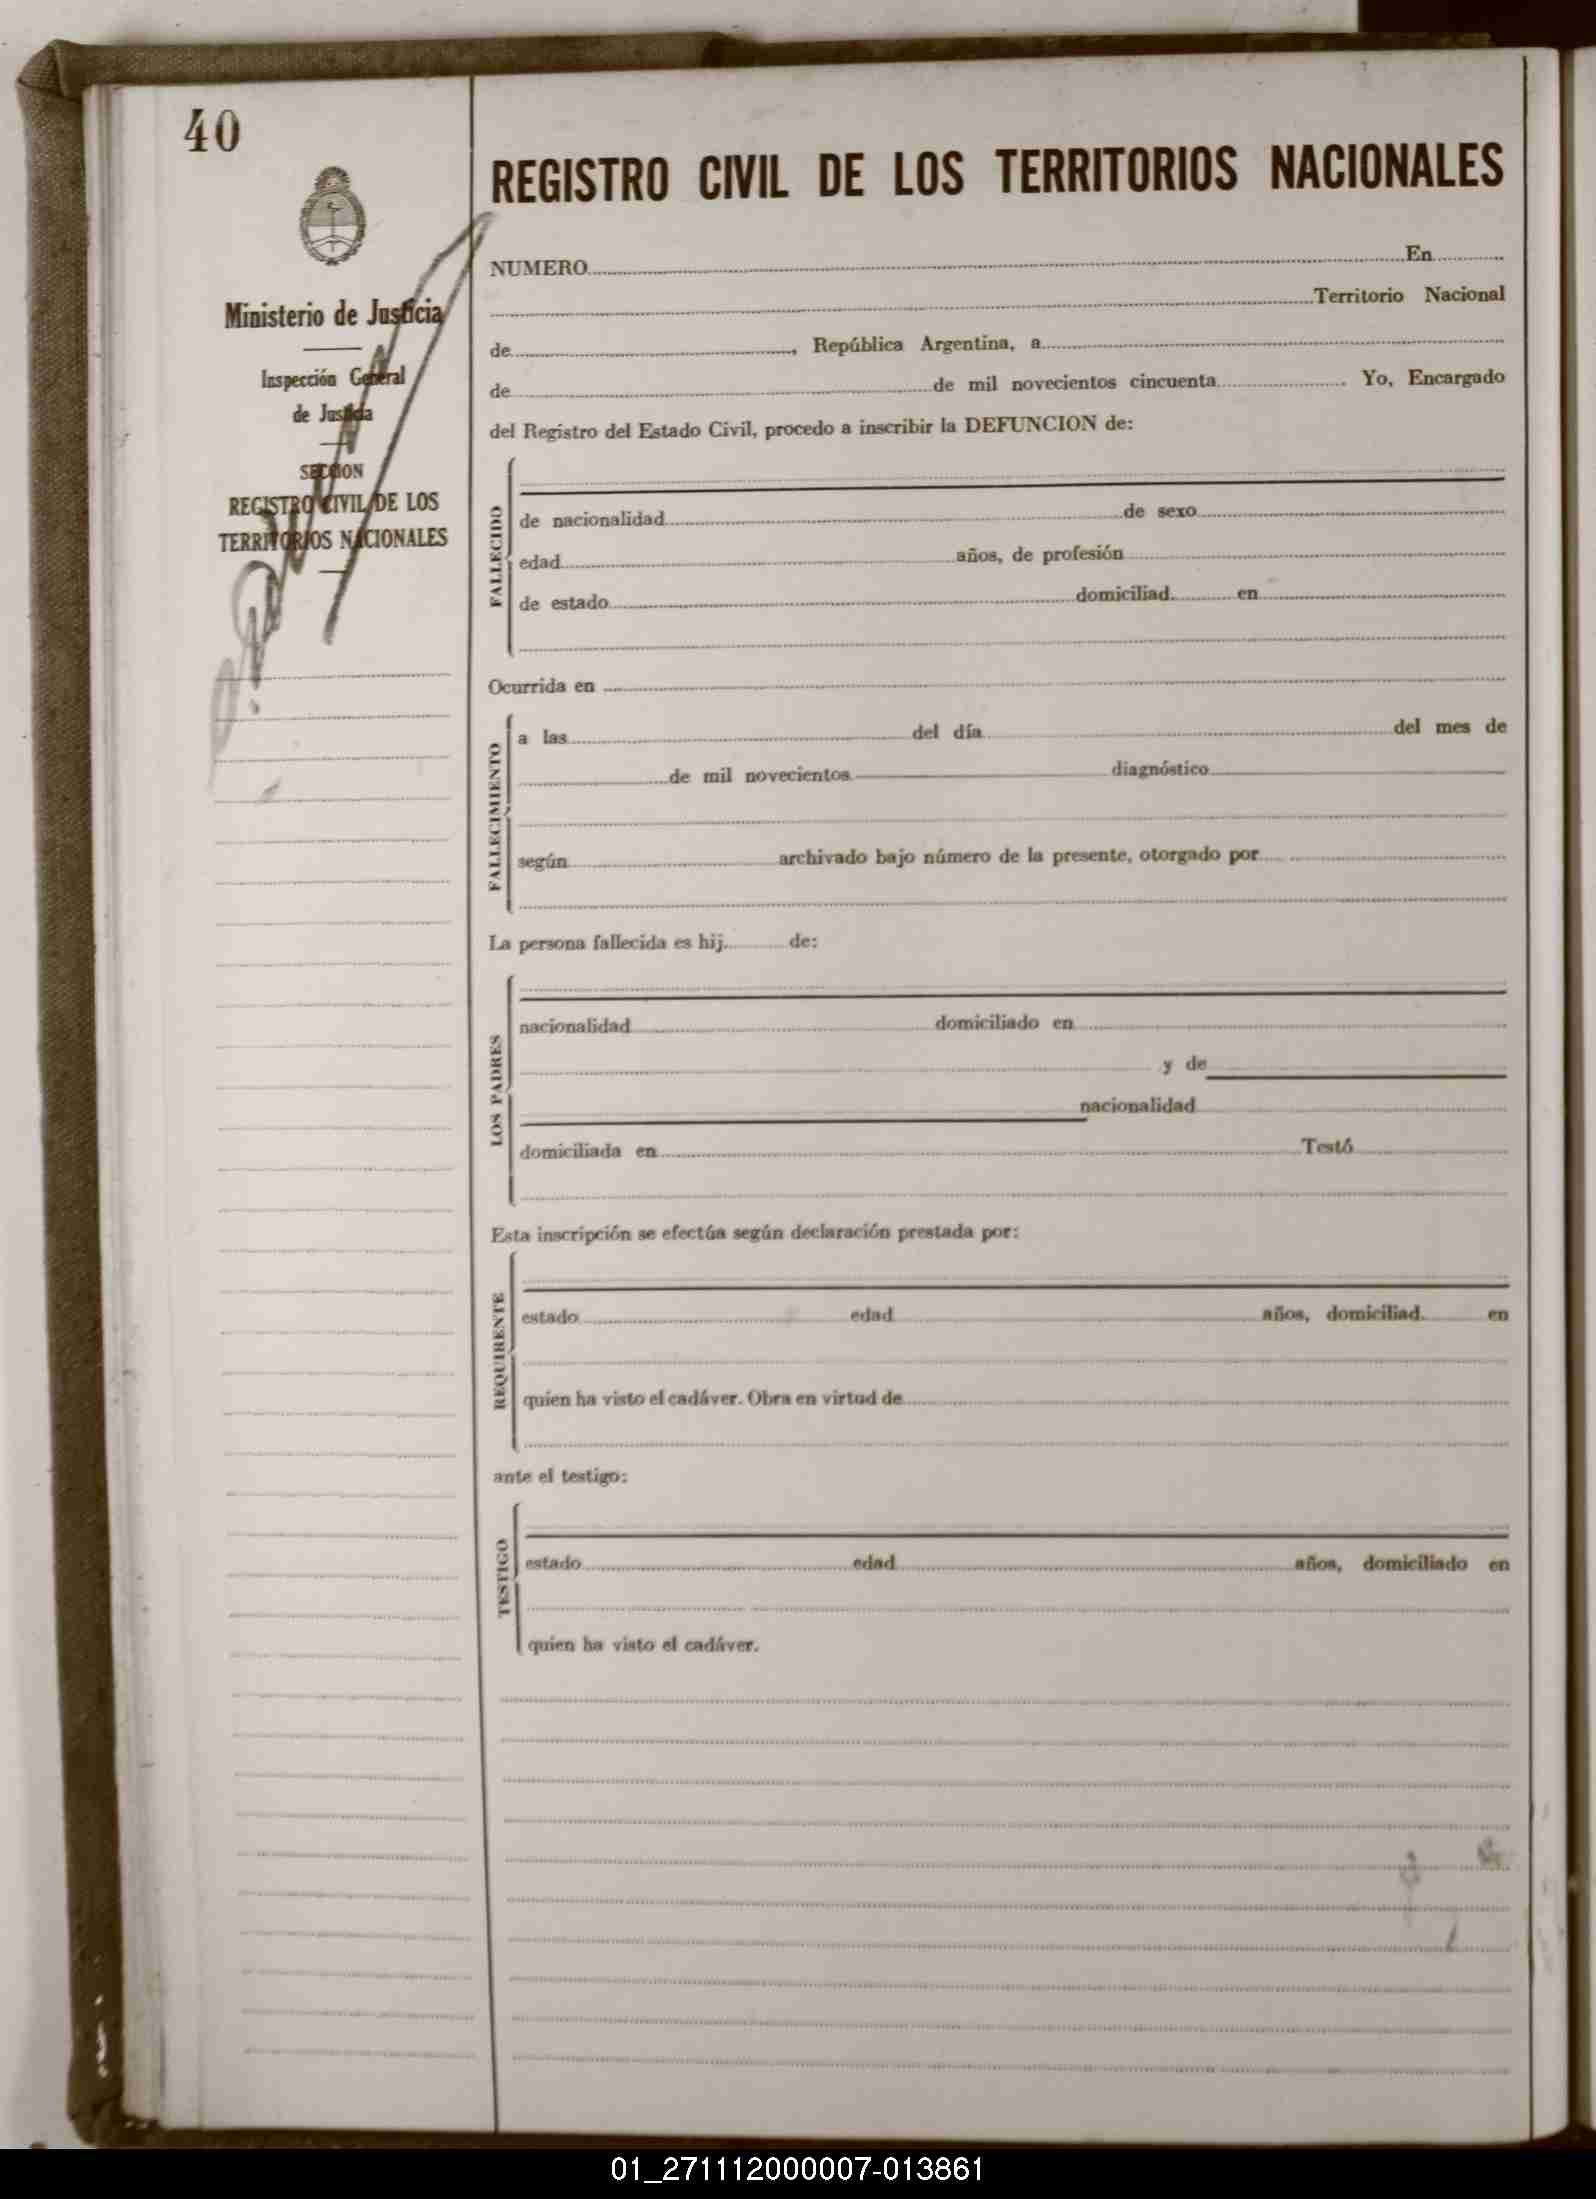 40
Ministerio de Justicia
Inspección General
de Justicia
SECCION
REGISTRO CIVIL DE LOS
TERRITORIOS NACIONALES
REGISTRO CIVIL DE LOS TERRITORIOS NACIONALES
NUMERO En
Territorio Nacional
de , República Argentina, a
de de mil novecientos cincuenta . Yo, Encargado
del Registro del Estado Civil, procedo a inscribir la DEFUNCION de:
FALLECIDO
de nacionalidad de sexo
edad años, de profesión
de estado domiciliad en
Ocurrida en
FALLECIMIENTO
a las del día del mes de
de mil novecientos diagnóstico
según archivado bajo número de la presente, otorgado por
La persona fallecida es hij de:
LOS PADRES
nacionalidad domiciliado en
y de
nacionalidad
domiciliada en Testó
Esta inscripción se efectúa según declaración prestada por:
REQUIRENTE
estado edad años, domiciliad en
quien ha visto el cadáver. Obra en virtud de
ante el testigo:
TESTIGO
estado edad años, domiciliado en
quien ha visto el cadáver.
01_271112000007-013861